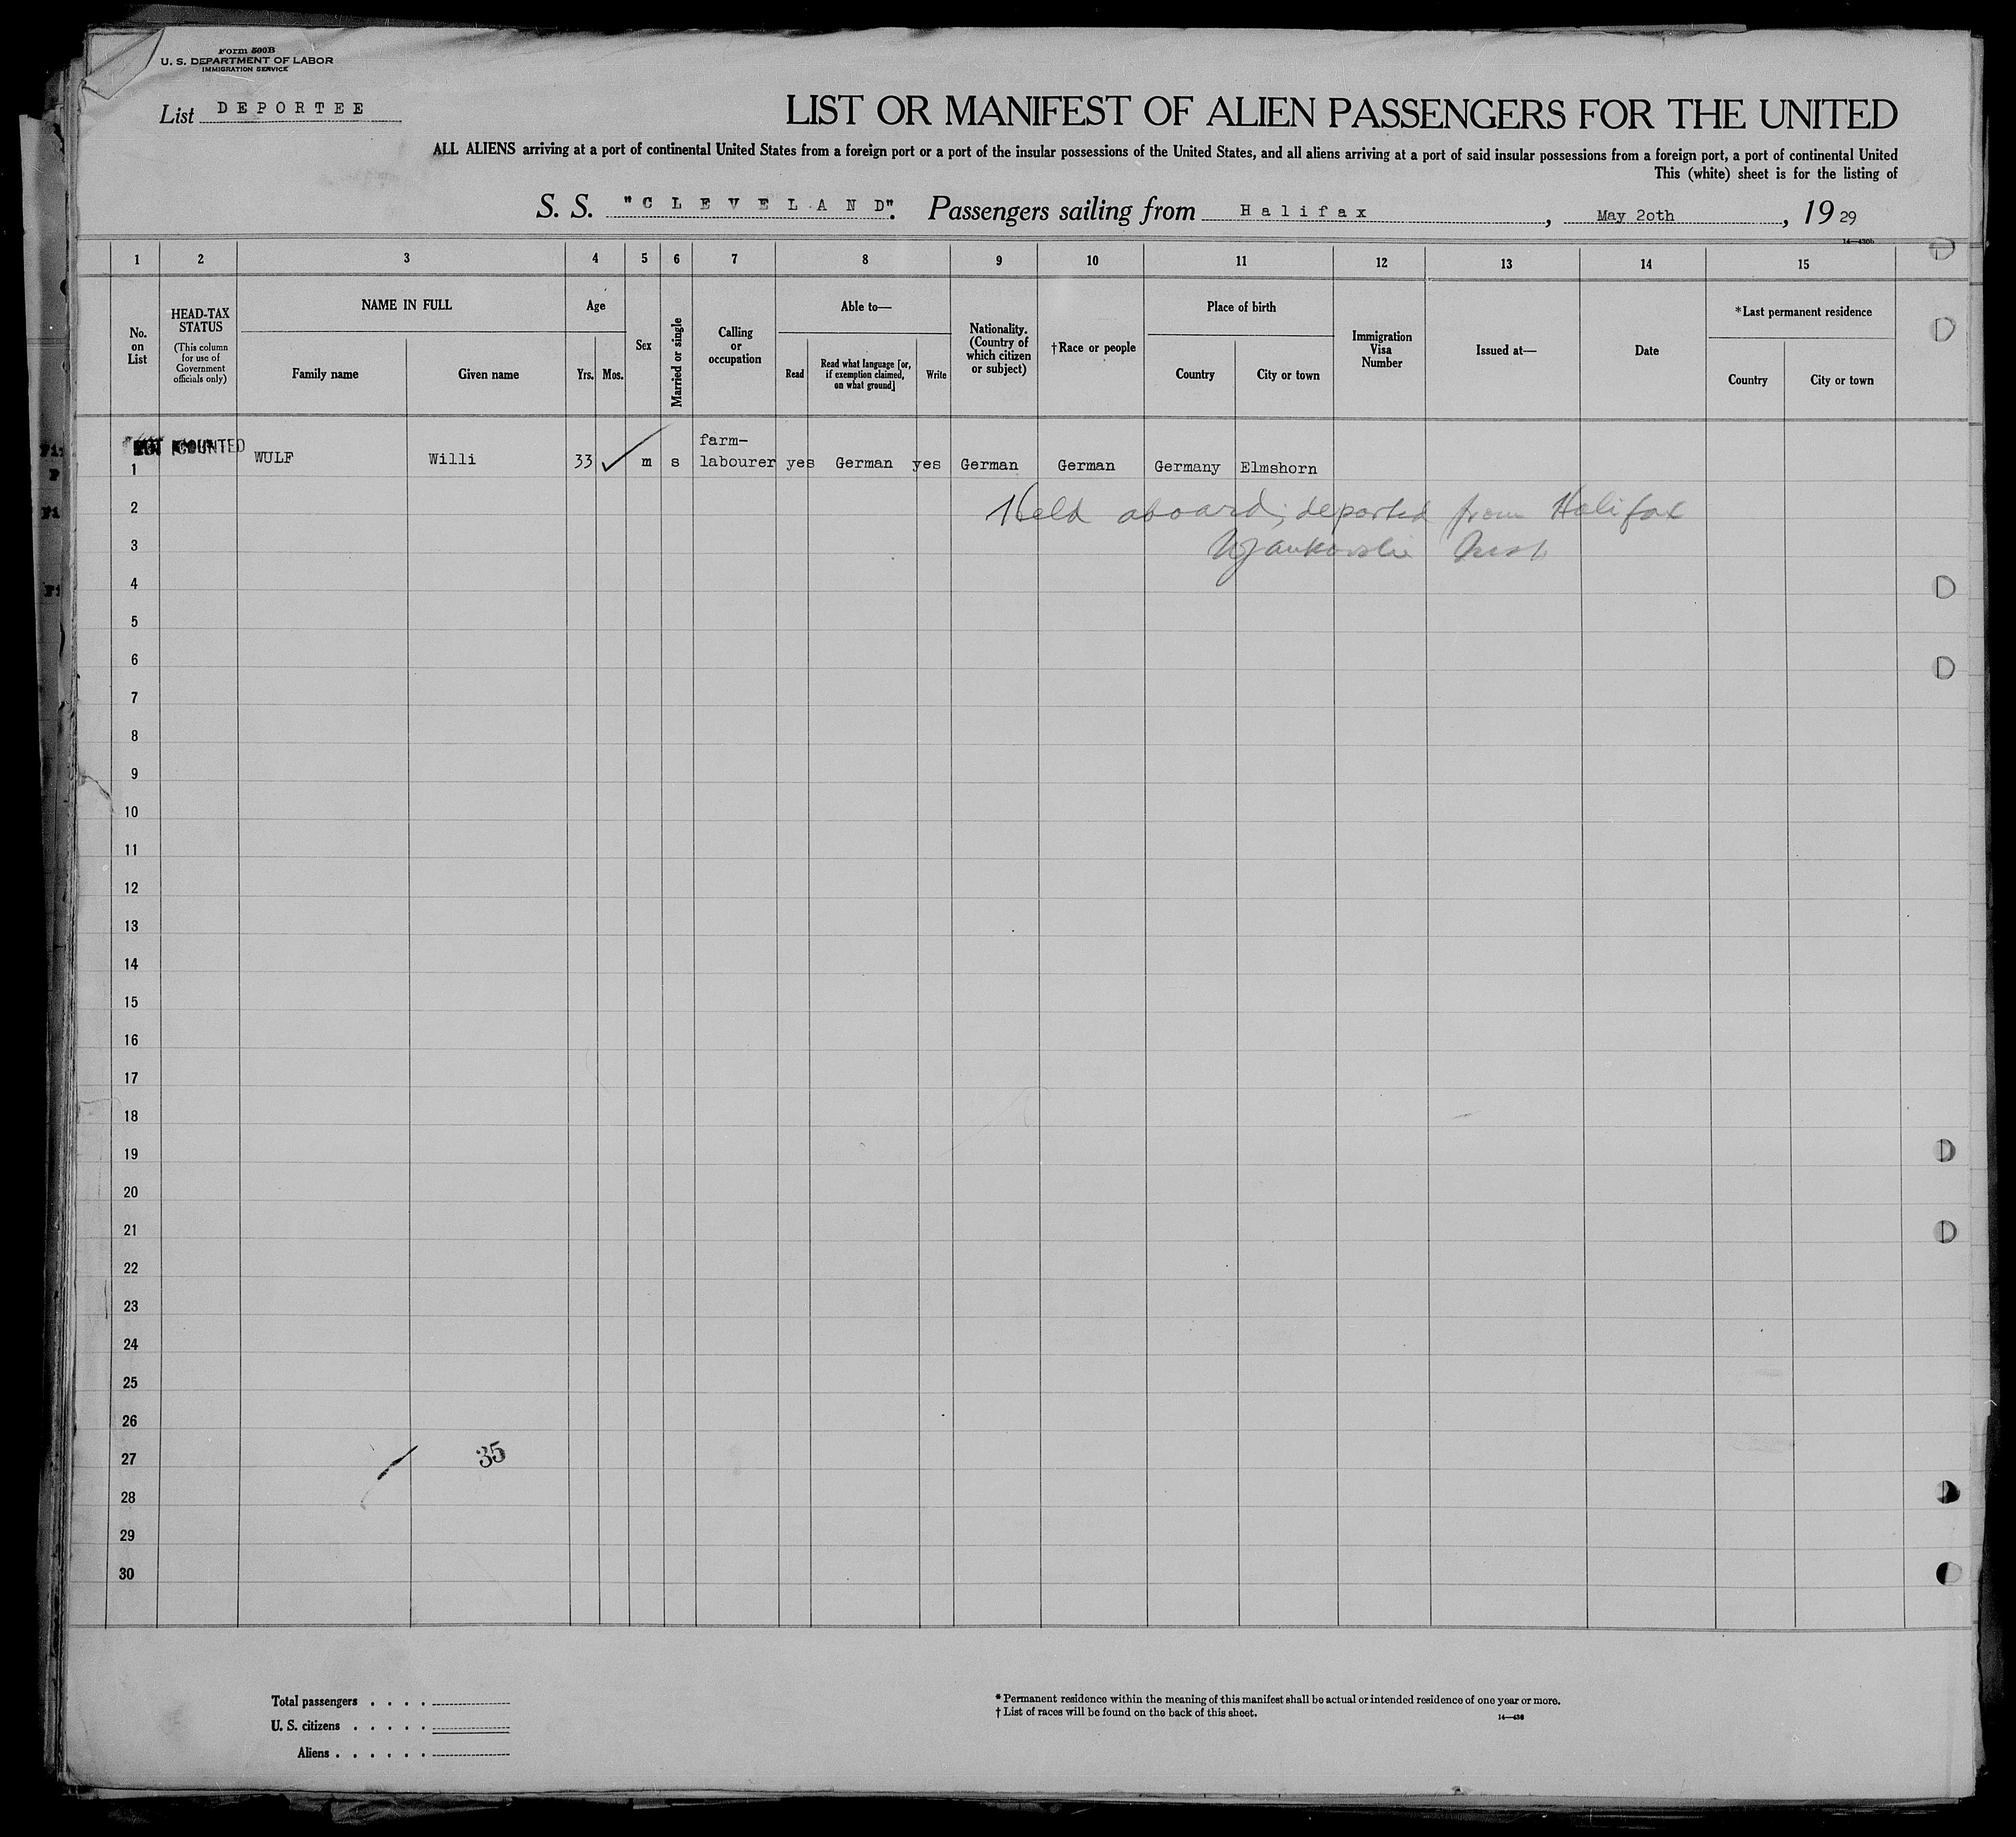 Form 500B
U. S. DEPARTMENT OF LABOR
IMMIGRATION SERVICE
List DEPORTEE
LIST OR MANIFEST OF ALIEN PASSENGERS FOR THE UNITED
ALL ALIENS arriving at a port of continental United States from a foreign port or a port of the insular possessions of the United States, and all aliens arriving at a port of said insular possessions from a foreign port, a port of continental United
This (white) sheet is for the listing of
S. S. "CLEVELAND". Passengers sailing from Halifax, May 20th, 1929
14—430b
1 2 3 4 5 6 7 8 9 10 11 12 13 14 15
No. on List
HEAD-TAX STATUS (This column for use of Government officials only)
NAME IN FULL
Family name
Given name
Age
Yrs.
Mos.
Sex
Married or single
Calling or occupation
Able to—
Read
Read what language [or, if exemption claimed, on what ground]
Write
Nationality. (Country of which citizen or subject)
†Race or people
Place of birth
Country
City or town
Immigration Visa Number
Issued at—
Date
*Last permanent residence
Country
City or town
NOT COUNTED
1 WULF Willi 33 m s farm-labourer yes German yes German German Germany Elmshorn
2 Held aboard; deported from Halifax
3
4
5
6
7
8
9
10
11
12
13
14
15
16
17
18
19
20
21
22
23
24
25
26
27 35
28
29
30
Total passengers . . . .
U. S. citizens . . . . .
Aliens . . . . . .
* Permanent residence within the meaning of this manifest shall be actual or intended residence of one year or more.
† List of races will be found on the back of this sheet.
14—430